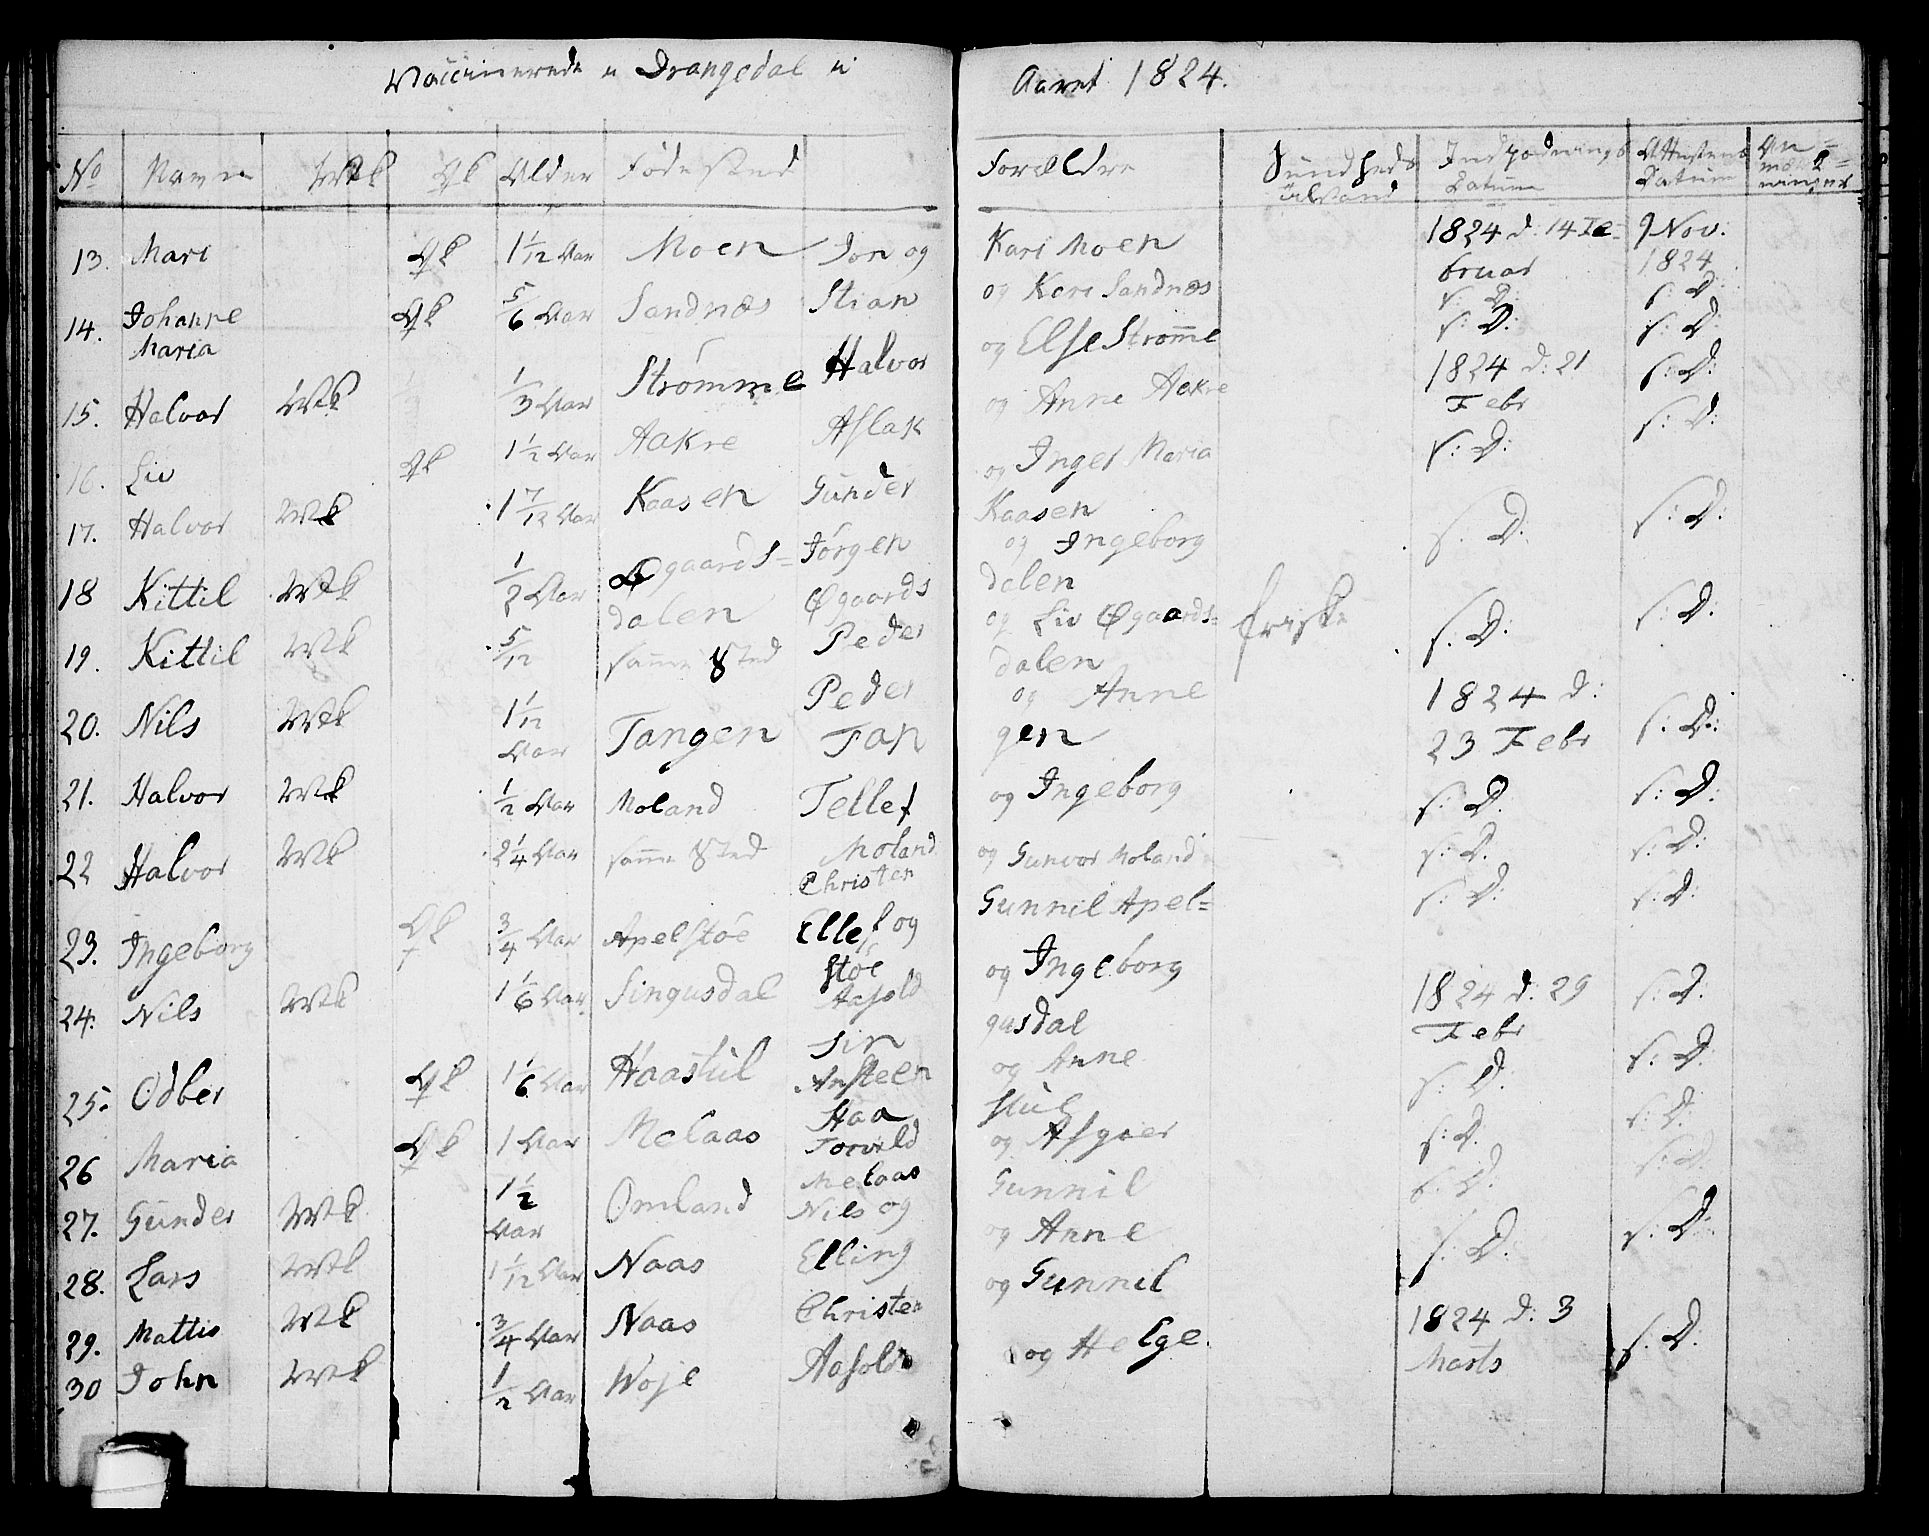 Vaccinerede i Drangedal i Aaret 1824.
No Navn Mk Qk Alder Fødested Forældre Sundheds Tilstand Indpodnings Datum Attestens Datum An= mærk= ninger
13. Mari Qk 1 1/12 Aar Moen Jon og Kari Moen 1824 d: 14 Fe= bruar 9 Nov: 1824
14. Johanne Maria Qk 5/6 Aar Sandnæs Stian og Kari Sandnæs s: D: s: D:
15. Halvor Mk 1/3 Aar Strømme Halvor og Else Strømme s: D: s: D:
16. Liv Qk 1 1/2 Aar Aakre Aslak og Anne Aakre 1824 d: 21 Febr s: D:
17. Halvor Mk 1 7/12 Aar Kaasen Gunder og Inger Maria Kaasen s: D: s: D:
18 Kittil Mk 1/2 Aar Øgaards= dalen Jørgen Øgaards og Ingeborg dalen s. D: s: D:
19. Kittil Mk 5/12 samme Sted Peder og Liv Øgaards= dalen friske s: D: s: D:
20. Nils Mk 1 1/12 Aar Tangen Peder Tan og Anne gen 1824 d: 23 Febr s: D:
21. Halvor Mk 1/2 Aar Moland Tellef og Ingeborg s: D. s: D:
22 Halvor Mk 2 1/4 Aar samme Sted Moland Christen og Gunvor Moland s: D. s: D:
23. Ingeborg Qk 3/4 Aar Apelstøe Ellef og støe Gunnil Apel= s: D: s: D:
24. Nils Mk 1 1/6 Aar Singusdal Aasold Sin og Ingeborg gusdal 1824 d: 29 Febr s: D.
25. Odber Qk 1 1/6 Aar Haastul Ansteen Haa og Anne stul s: D: s: D:
26 Maria Qk 1 Aar Melaas Torvild Melaas og Asgier s: D. s: D.
27. Gunder Mk 1 1/2 Aar Omland Nils og Gunnil s: D. s: D.
28. Lars Mk 1 1/12 Aar Naas Elling og Anne s: D: s: D:
29. Mattis Mk 3/4 Aar Naas Christen og Gunnil
30 John Mk 1/2 Aar Woje Aasold og Helge. 1824 d: 3 Marts s: D: